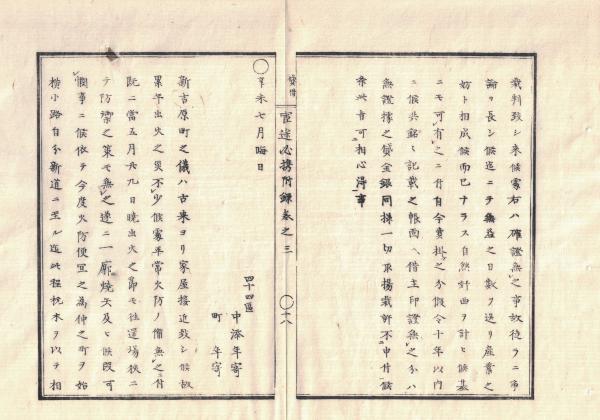 裁判致シ来候處右ハ確證無之事故徒ラニ市
論ヲ長シ候迄ニテ無益之日數ヲ送リ産業之
妨ト相成候而已ナラス自然奸曲ヲ計ヒ候基
ニモ可有之ニ付自今賣掛之分假令十年以内
ニ候共銘々記載之帳面ヘ借主印證無之分ハ
無證據之貸金銀同様一切取揚裁許不申付候
条此旨可相心得事
貸借
官途必携附録巻之三
〇十八
〇辛未七月晦日
四十四區
中添年寄
町年寄
新吉原町之儀ハ古来ヨリ家屋接近致シ候故
累年出火之災不少候處平常火防ノ備無之付
既ニ當五月廿九日曉出火之節モ往還場狭ニ
テ防禦之策モ無之速ニ一廓焼失及ヒ候段可
憫事ニ候依テ今度火防便宜之為仲之町ヲ始
横小路自分新道ニ至ル迄此程杭木ヲ以テ相